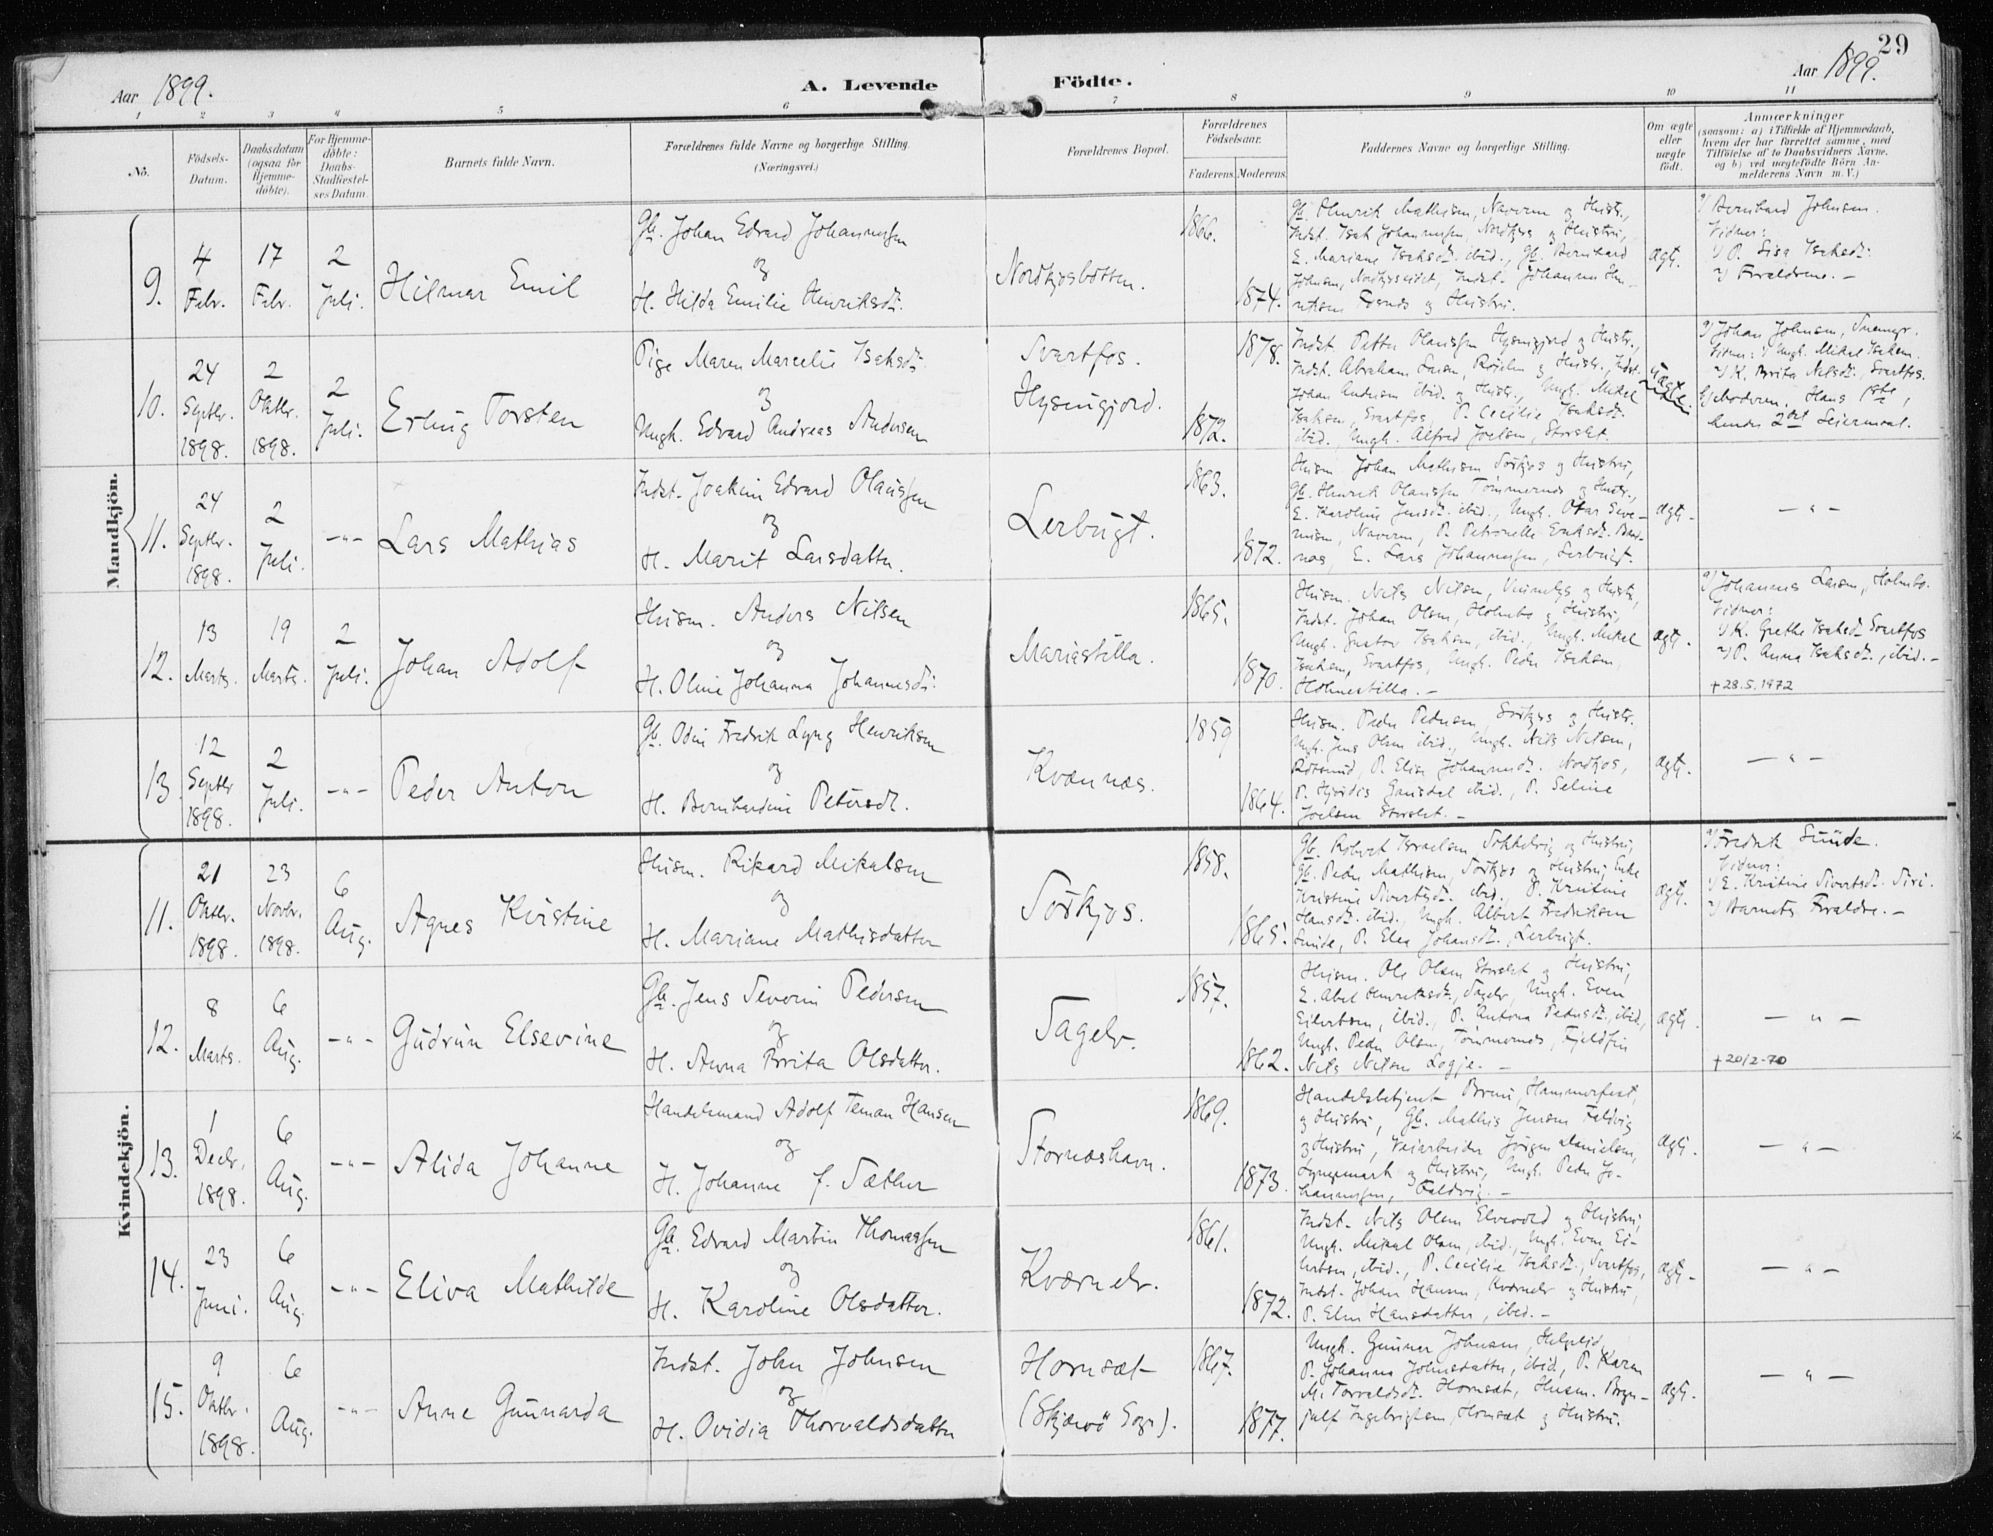 29
Aar 1899.
A. Levende Födte.
Aar 1899.
1 2 3 4 5 6 7 8 9 10 11
No.
Födsels-
Datum.
Daabsdatum
(ogsaa for
Hjemme-
døbte).
For Hjemme-
døbte:
Daabs-
Stadfæstel-
ses Datum.
Barnets fulde Navn.
Forældrenes fulde Navne og borgerlige Stilling.
(Næringsvei.)
Forældrenes Bopæl.
Forældrenes
Födselsaar.
Faderens. Moderens.
Faddernes Navne og borgerlige Stilling.
Om ægte
eller
uægte
født.
Anmærkninger
(saasom: a) i Tilfælde af Hjemmedaab,
hvem der har forrettet samme, med
Tilföielse af to Daabsvidners Navne.
og b) ved uægtefödte Börn An-
melderens Navn m. V.)
Mandkjön.
9.
4
Febr.
17
Febr.
2
Juli.
Hilmar Emil
Gb. Johan Edvard Johannessen
og
H. Hilda Emilie Henriksdt.
Nordkjosbotten.
1866.
1874.
Gb. Henrik Mathisen, Navaren og Hustr.,
Indst. Isak Johannessen, Nordkjos og Hustru,
E. Mariane Isaksdt. ibid., Gb. Bernhard
Johnsen, Nordkjoseidet, Indst. Johannes Hen-
riksen og Hustru.
ægt.
a) Bernhard Johnsen.
Vidner:
1) P. Lisa Isaksdt.
2) Forældrene. —
10.
24
Septbr.
1898.
2
Oktbr.
1898.
2
Juli.
Erling Torsten
Pige Maren Marcelie Isaksdt.
og
Ungk. Edvard Andreas Andersen
Svartfos.
Hysingjord.
1878.
1872.
Indst. Petter Olaussen Hysingjord og Hustr.,
Indst. Abraham Larsen, og Hustr., Indst.
Johan Andersen ibid. og Hustr., Ungk. Mikal
Isaksen, Svartfos, P. Cecilie Isaksdt.
ibid., Ungk. Alfred Joelsen, Storslet.
uægte
a) Johan Johnsen,
Vidner: 1) Ungk. Mikal Isaksen.
2) K. Brita Nilsdt., Svartfos.
b) Moderen. Hans 1ste,
hendes 2det Leiermaal.
11.
24
Septbr.
1898.
2
Juli.
— " —
Lars Mathias
Indst. Joakim Edvard Olaussen
og
H. Marit Larsdatter.
Lerbugt.
1863.
1872.
Husm. Johan Mathisen Sörkjos og Hustru,
Gb. Henrik Olaussen Tömmernes og Hustr.,
E. Karoline Jensdt. ibid., Ungk. Otar Seve-
rinsen, Navaren, P. Petronelle
E. Lars Johannessen, Lerbugt.
ægt.
— " —
12.
13
Marts.
19
Marts.
2
Juli.
Johan Adolf
Husm. Anders Nilsen
og
H. Oline Johanna Johannesdt.
Mariastilla.
1865.
1870.
Husm. Nils Nilsen, og Hustr,
Indst. Johan Olsen, Holmbo og Hustru,
Ungk. Gustav Isaksen, ibid., Ungk. Mikal
Isaksen, Svartfos, Ungk. Peder Isaksen,
Holmestilla. —
ægt.
a) Johannes Larsen, Holmbo.
Vidner:
1) K. Grethe Isaksdt. Svartfos
2) P. Anna Isaksdt., ibid. —
+ 28.5.1972
13.
12
Septbr
1898.
2
Juli.
— " —
Peder Anton
Gb. Odin Fredrik Lyng Henriksen
og
H. Bernhardine Petersdt.
Kvænnæs.
1859
1864.
Husm. Peder Pedersen, Sörkjos og Hustr.
Ungk. Jens Olsen ibid., Ungk. Nils Nilsen,
P. Elise Johannesdt. Nordkjos,
P. Hjördis ibid., P. Seline
Joelsen Storslet. —
ægt.
— " —
Kvindekjön.
11.
21
Oktbr.
1898.
23
Novbr.
1898.
6
Aug.
Agnes Kristine
Husm. Rikard Mikalsen
og
H. Mariane Mathisdatter
Sörkjos.
1858.
1865.
Gb. Robert Israelsen Sokkelvig og Hustru,
Gb. Peder Mathisen, Sörkjos og Hustru, Enke
Kristine Sivertsdt. ibid., P. Kristine
Hansdt. ibid., Ungk. Albert Fredriksen
Sunde, P. Elen Johansdt., Lerbugt.
ægt.
a) Fredrik Sunde.
Vidner:
1) E. Kristine Sivertsdt.
2) Barnets Forældre. —
12.
8
Marts.
6
Aug.
— " —
Gudrun Elsevine
Gb. Jens Severin Pedersen
og
H. Anna Brita Olsdatter.
Tagelv.
1857.
1862.
Husm. Ole Olsen Storslet og Hustru,
E. Abel Henriksdt., Tagelv, Ungk. Even
Eilertsen, ibid., P. Antona Pedersdt., ibid,
Ungk. Peder Olsen, Tömmernes, Fjeldfin
Nils Nilsen Logje. —
ægt.
— " —
+ 20/2-70
13.
1
Decbr.
1898.
6
Aug.
— " —
Alida Johanne
Handelsmand Adolf Teman Hansen
og
H. Johanne f. Sæther
Stornæshavn.
1869.
1873.
Handelsbetjent Brun, Hammerfest,
og Hustru, Gb. Mathis Jensen Faldvig
og Hustru, Veiarbeider Jörgen Danielsen,
Lyngsmark og Hustru, Ungk. Peder Jo-
hannessen, Faldvig. —
ægt.
— " —
14.
23
Juni.
6
Aug.
— " —
Eliva Mathilde
Gb. Edvard Martin Thomassen
og
H. Karoline Olsdatter.
Kværnelv.
1861.
1872.
Indst. Nils Olsen Elvevold og Hustru,
Ungk. Mikal Olsen, ibid., Ungk. Even Ei-
lertsen, ibid., P. Cecilie Isaksdt., Svartfos,
Indst. Johan Hansen, Kværnelv og Hustru,
P. Elen Hansdatter, ibid. —
ægt.
— " —
15.
9
Oktbr.
1898.
6
Aug.
— " —
Anne Gunnarda
Indst. John Johnsen
og
H. Ovidia Thorvaldsdatter
Hornsæt
(Skjærvö Sogn).
1867.
1877.
Ungk. Gunnar Johnsen,
P. Johanna Johnsdatter, ibid., P. Karen
M. Torvaldsdt. Hornsæt, Husm. Bryn-
julf Ingebrigtsen, Hornsæt og Hustru.
ægt.
— " —